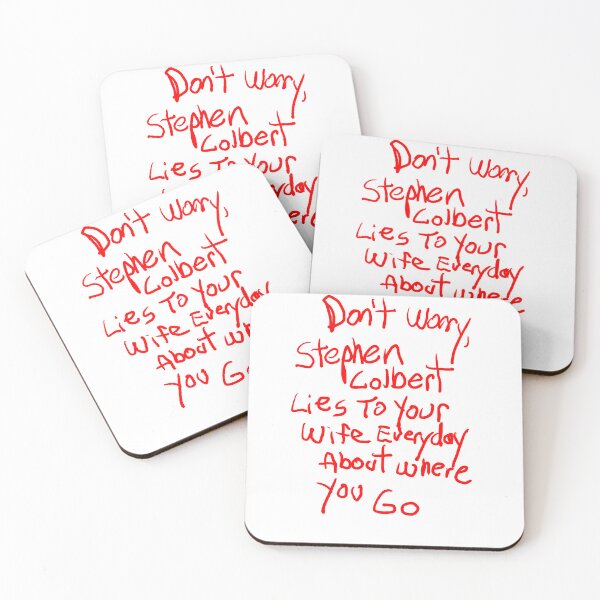 Don't Worry,
Stephen
Colbert
Lies To Your
Don't Worry,
Stephen
Colbert
Lies To Your
Wife Everyday
About Where
Don't Worry,
Stephen
Colbert
Lies To Your
Wife Everyday
About
You Go
Don't Worry,
Stephen
Colbert
Lies To Your
Wife Everyday
About Where
You Go